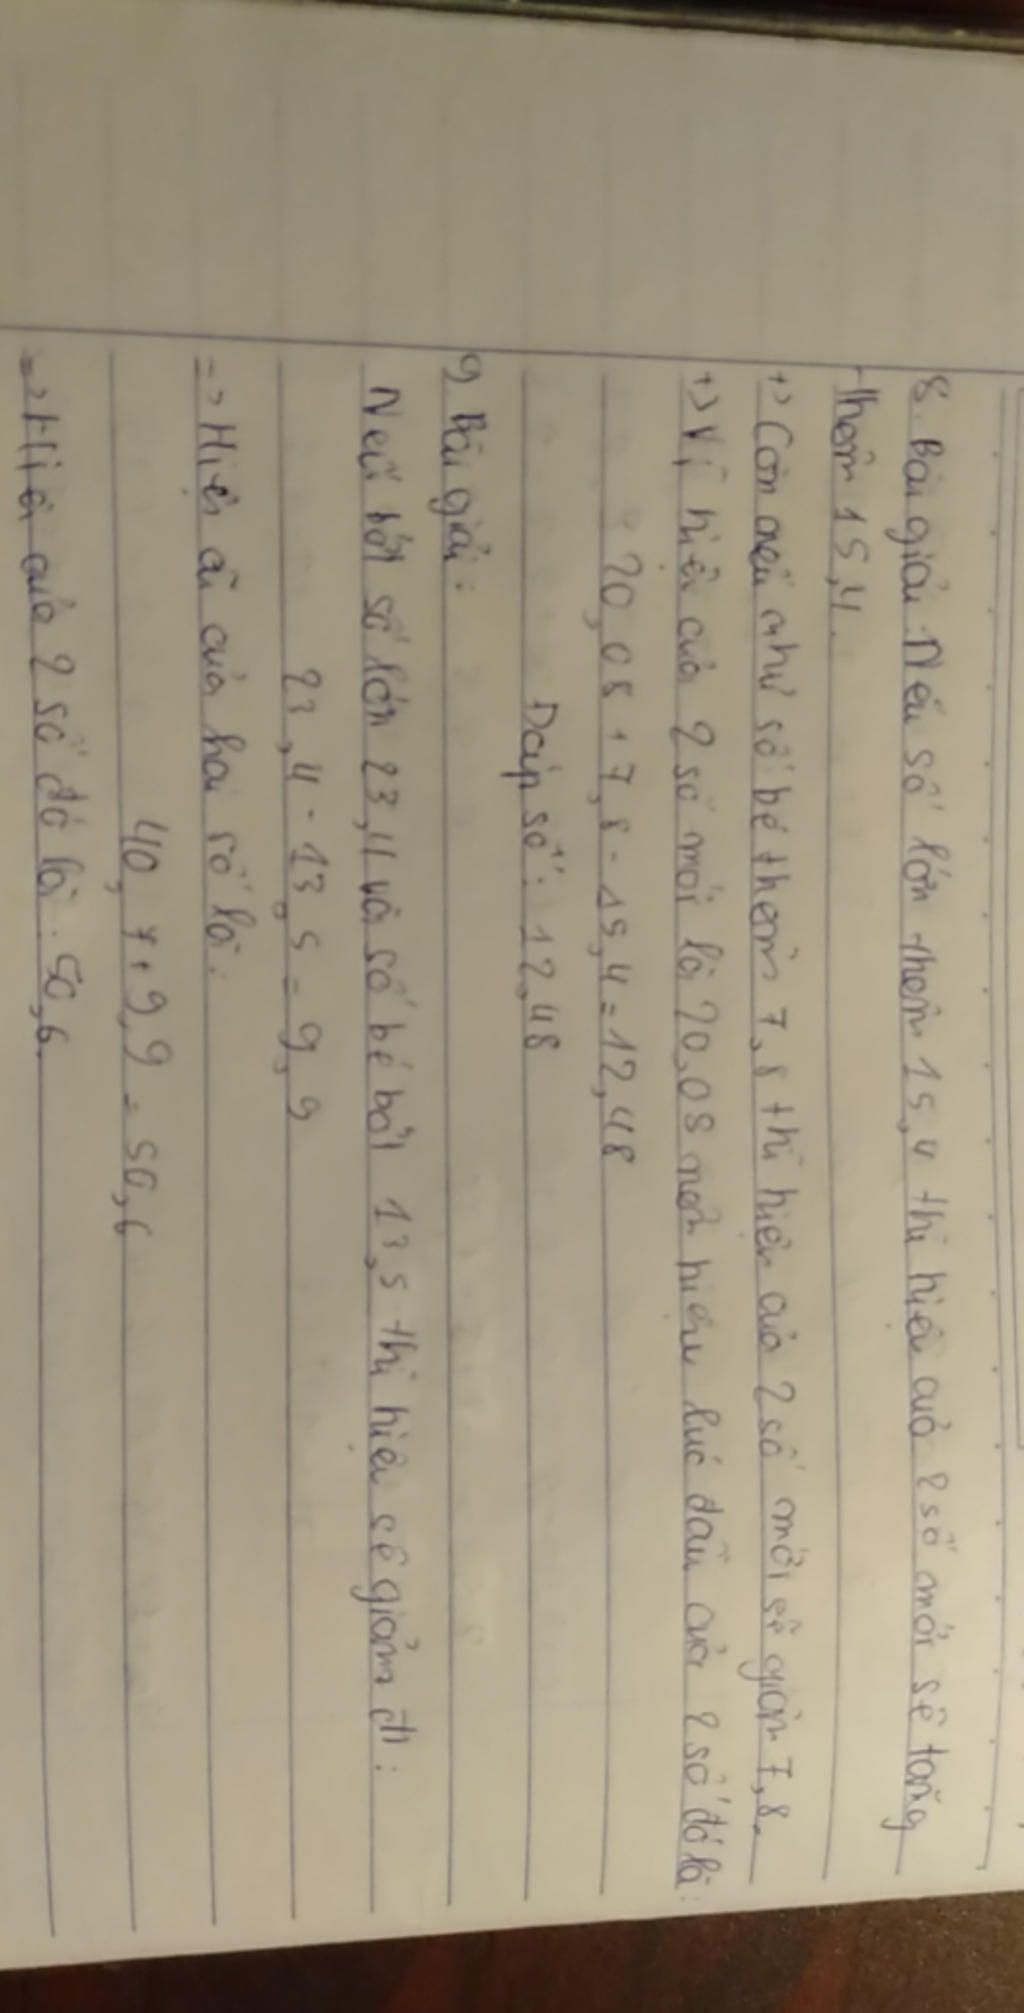 8. Bài giải: Nếu số lớn thêm 15,4 thì hiệu của 2 số mới sẽ tăng
thêm 15,4.
+) Còn nếu như số bé thêm 7,8 thì hiệu của 2 số mới sẽ giảm 7,8.
+) Vì hiệu của 2 số mới là 20,08 nên hiệu lúc đầu của 2 số đó là:
20,08 + 7,8 - 15,4 = 12,48
Đáp số: 12,48
9 Bài giải:
Nếu bớt số lớn 23,4 và số bé bớt 13,5 thì hiệu sẽ giảm đi:
23,4 - 13,5 = 9,9
=> Hiệu cũ của hai số là:
40,7 + 9,9 = 50,6
=> Hiệu của 2 số đó là: 50,6.